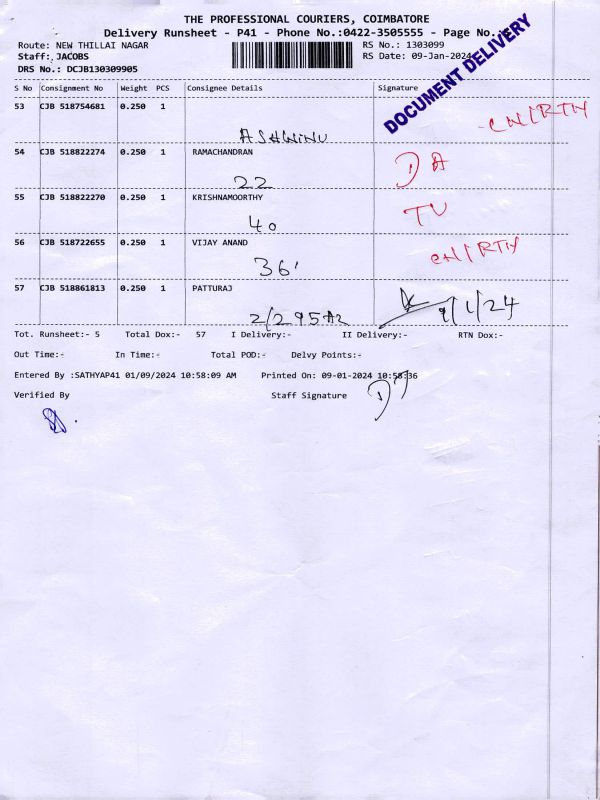 THE PROFESSIONAL COURIERS, COIMBATORE
Delivery Runsheet - P41 - Phone No.:0422-3505555 - Page No.:
Route: NEW THILLAI NAGAR
RS No.: 1303099
Staff: JACOBS
RS Date: 09-Jan-2024
DRS No.: DCJB130309905
DOCUMENT DELIVERY
S No Consignment No Weight PCS Consignee Details Signature
53 CJB 518754681 0.250 1
CN/RTN
54 CJB 518822274 0.250 1 RAMACHANDRAN
22
55 CJB 518822270 0.250 1 KRISHNAMOORTHY
40
56 CJB 518722655 0.250 1 VIJAY ANAND
CN/RTN
36
57 CJB 518861813 0.250 1 PATTURAJ
9/1/24
Tot. Runsheet:- 5 Total Dox:- 57 I Delivery:- II Delivery:- RTN Dox:-
Out Time:- In Time:- Total POD:- Delvy Points:-
Entered By :SATHYAP41 01/09/2024 10:58:09 AM Printed On: 09-01-2024 10:58:36
Verified By Staff Signature